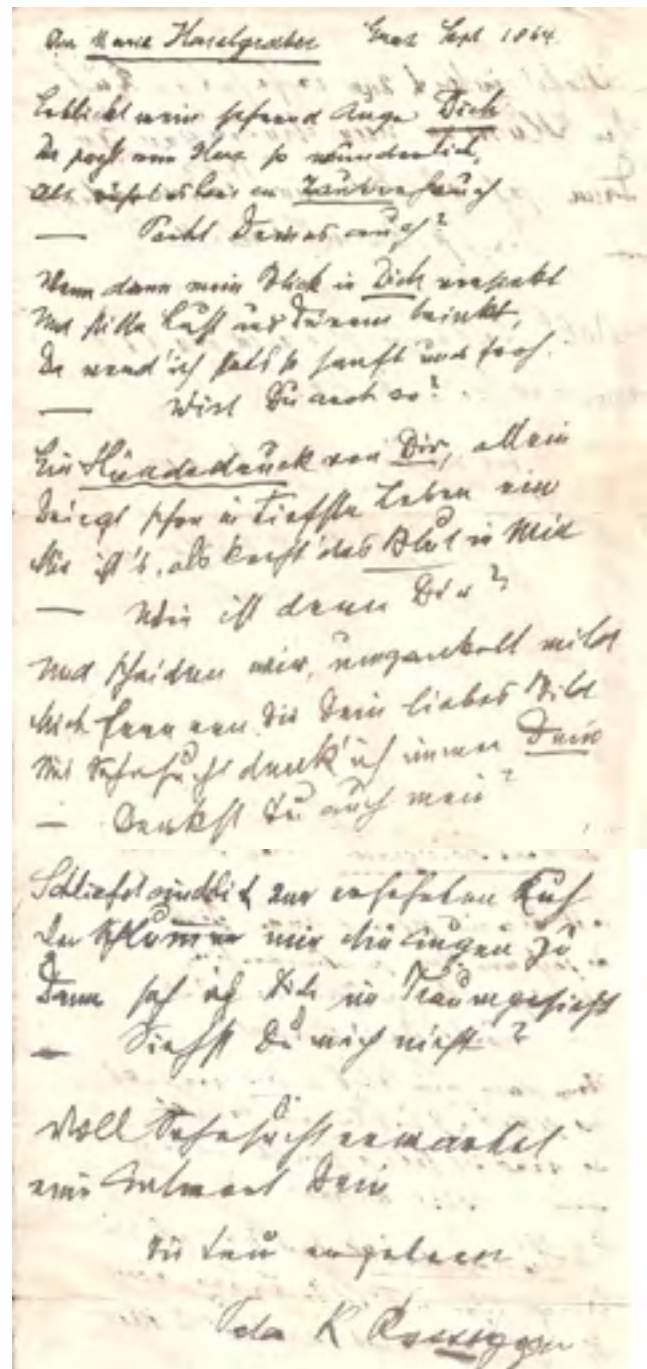 An Marie Haselgraber Graz Sept 1864.
Erblickt mein sehnend Auge Dich
Da pocht mein Herz so wunderlich,
Als rührt es leis ein Zauberhauch
— Pocht Deines auch?
Wenn dann mein Blick in Dich versinkt
Und stille Lust aus Deinem trinkt,
Da werd' ich stets so sanft und froh.
— Wirst Du auch so?
Ein Händedruck von Dir, allein
Dringt schon in tiefste Leben ein
Mir ist's, als das Blut in Mir
— Wie ist denn Dir?
Und scheiden wir, umgaukelt mild
Mich fern von Dir Dein liebes Bild
Mit Sehnsucht denk' ich immer Dein
— Denkst Du auch mein?
Schliesst endlich zur ersehnten Ruh
Der Schlummer mir die Augen zu
Dann seh ich Dich im Traumgesicht
— Siehst Du mich nicht?
Voll Sehnsucht erwartet
eine Antwort Dein
Dir treu ergebener
Peter K Rossegger